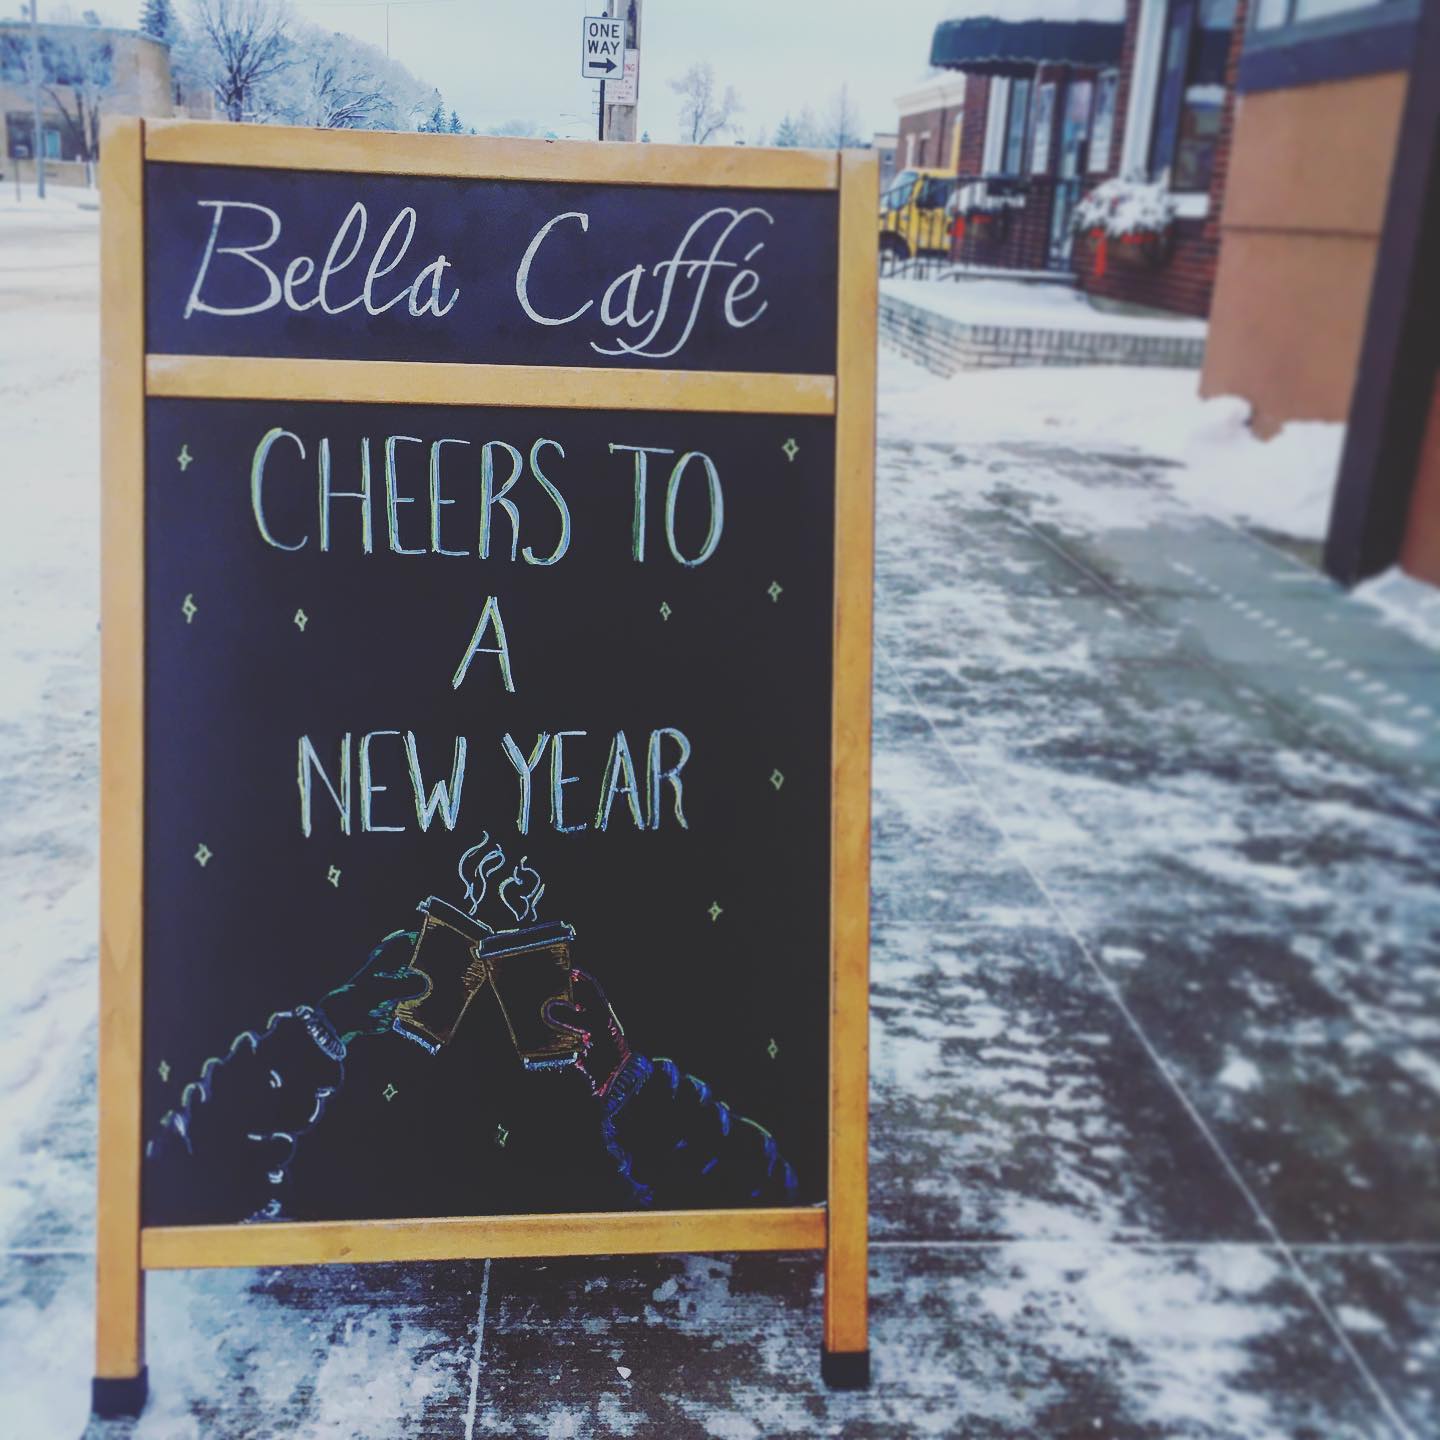 ONE
WAY
Bella Caffé
CHEERS TO
A
NEW YEAR